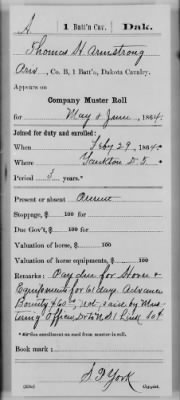 A | 1 Batt'n Cav. | Dak.
Thomas H. Armstrong
, Co. B, 1 Batt'n, Dakota Cavalry.
Appears on
Company Muster Roll
for May & June, 1864.
Joined for duty and enrolled:
When Feby 29, 1864.
Where Yankton D. T.
Period 3 years.*
Present or absent Present
Stoppage, $ 100 for
Due Gov't, $ 100 for
Valuation of horse, $ 100
Valuation of horse equipments, $ 100
Remarks: Pay due for Horse &
Equipments for 61 days. Advance
Bounty $60 not paid by Mus-
tering Officer
* See enrollment on card from muster-in roll.
Book mark:
S. P. York
(358c) Copyist.